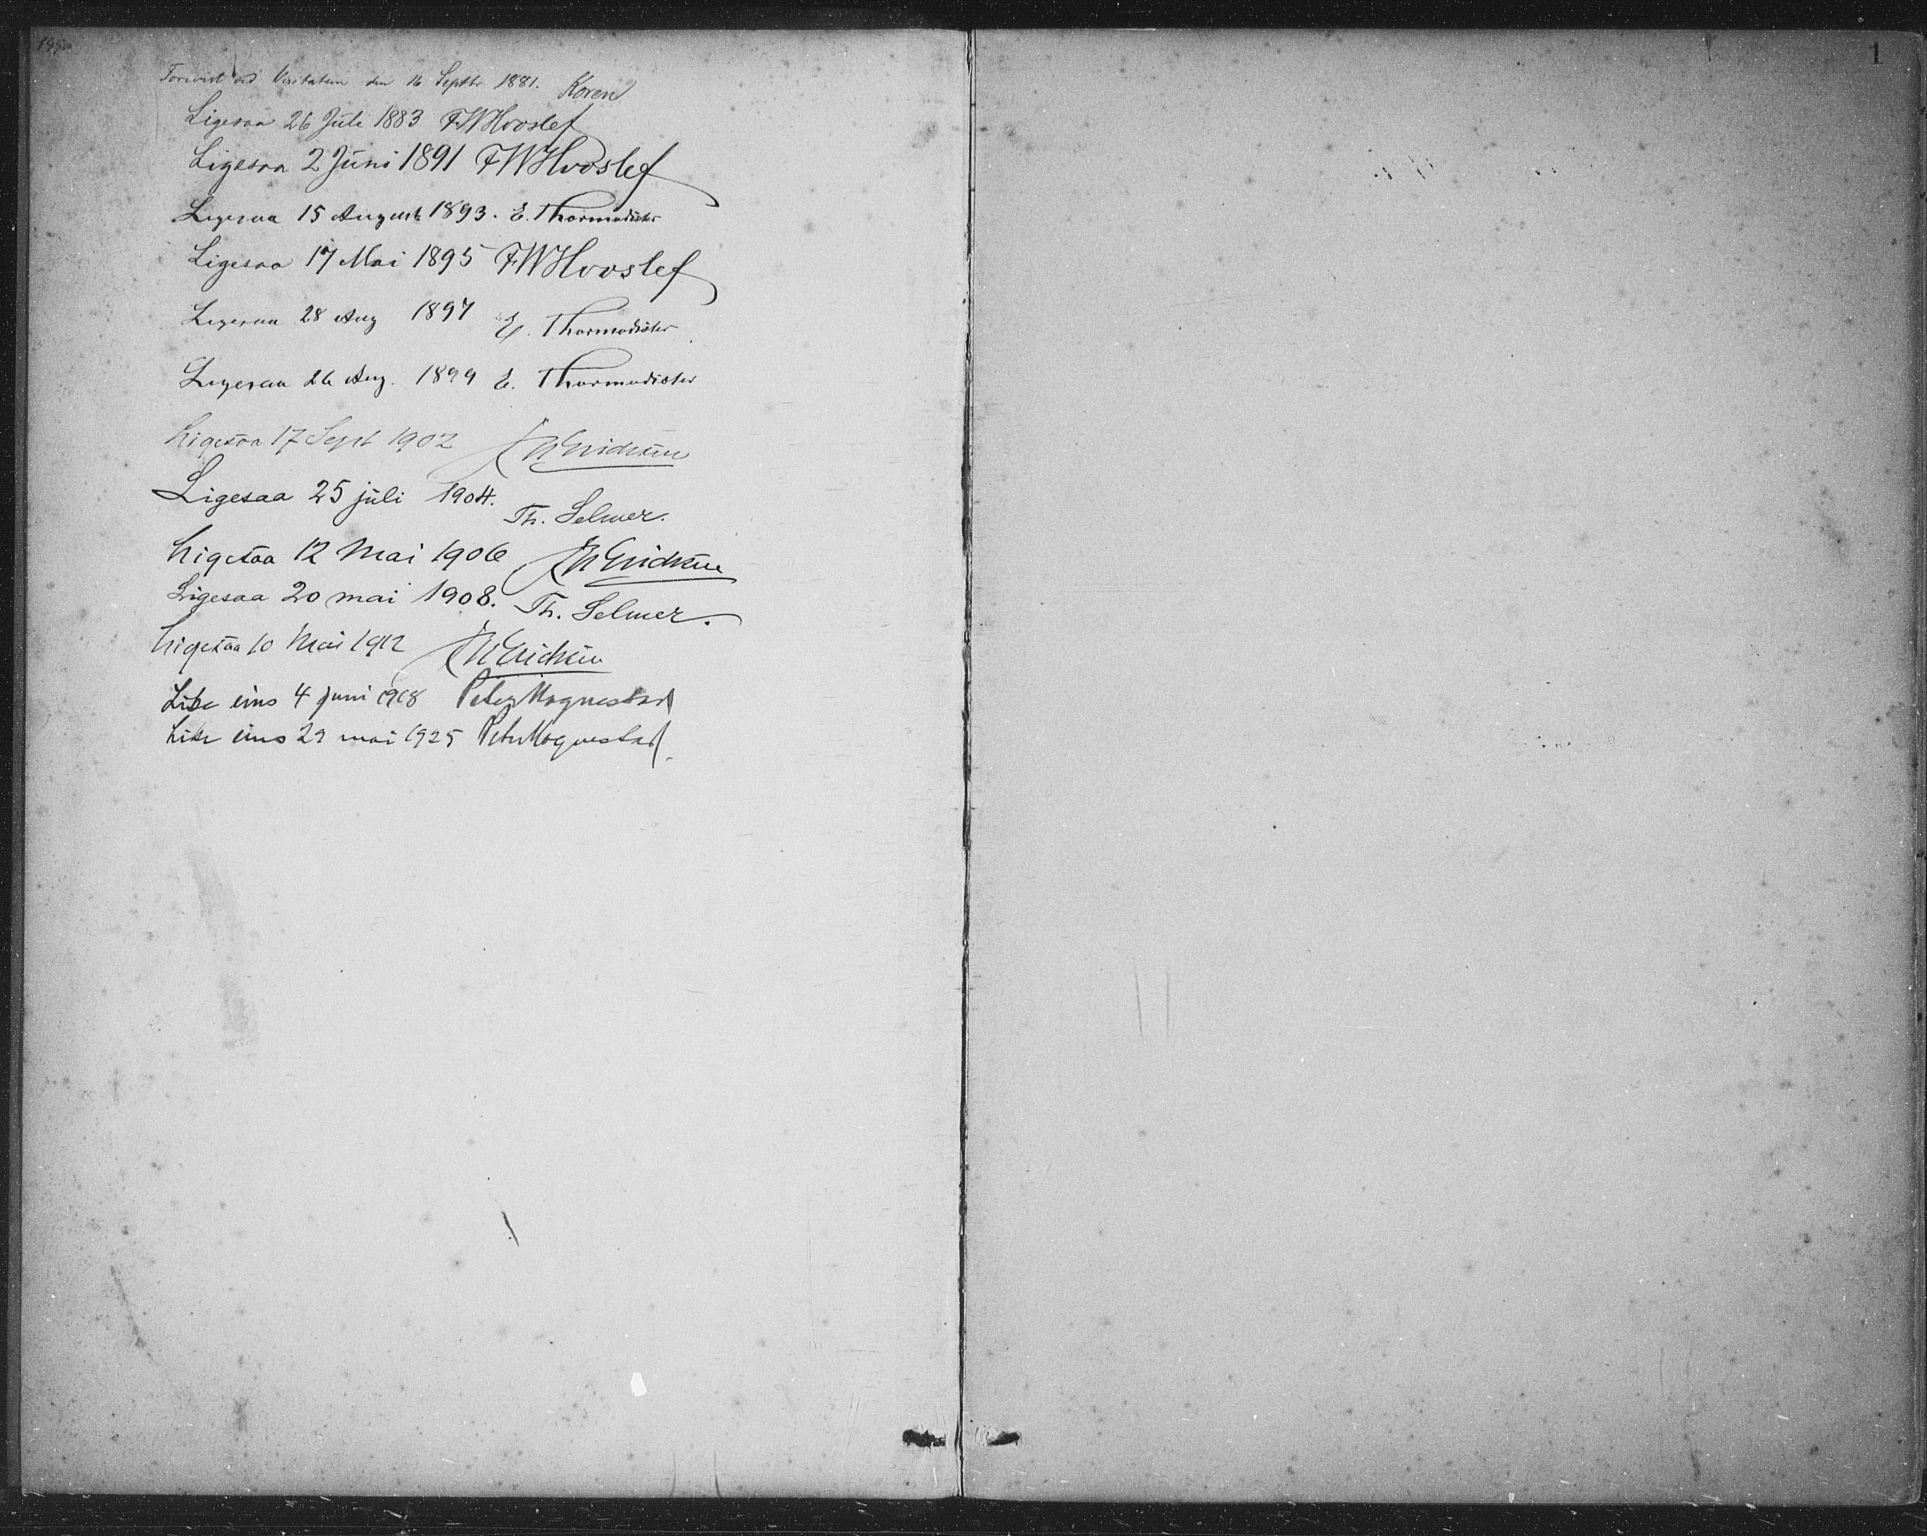 Forevist ved Visitatsen den 16 Septbr 1881. Koren
Ligesaa 26 Juli 1883 FWHvoslef
Ligesaa 2 Juni 1891 FWHvoslef
Ligesaa 15 August 1893. E. Thormodsæter
Ligesaa 17 Mai 1895 FWHvoslef
Ligesaa 28 Aug 1897 E. Thormodsæter
Ligesaa 26 Aug. 1899 E. Thormodsæter
Ligesaa 17 Sept 1902
Ligesaa 25 juli 1904. Th. Selmer.
Ligesaa 12 Mai 1906
Ligesaa 20 mai 1908. Th. Selmer.
Ligesaa 10 Mai 1912
Like eins 4 juni 1918 Peter Mognestad
Like eins 29 mai 1925 Peter Mognestad.
1